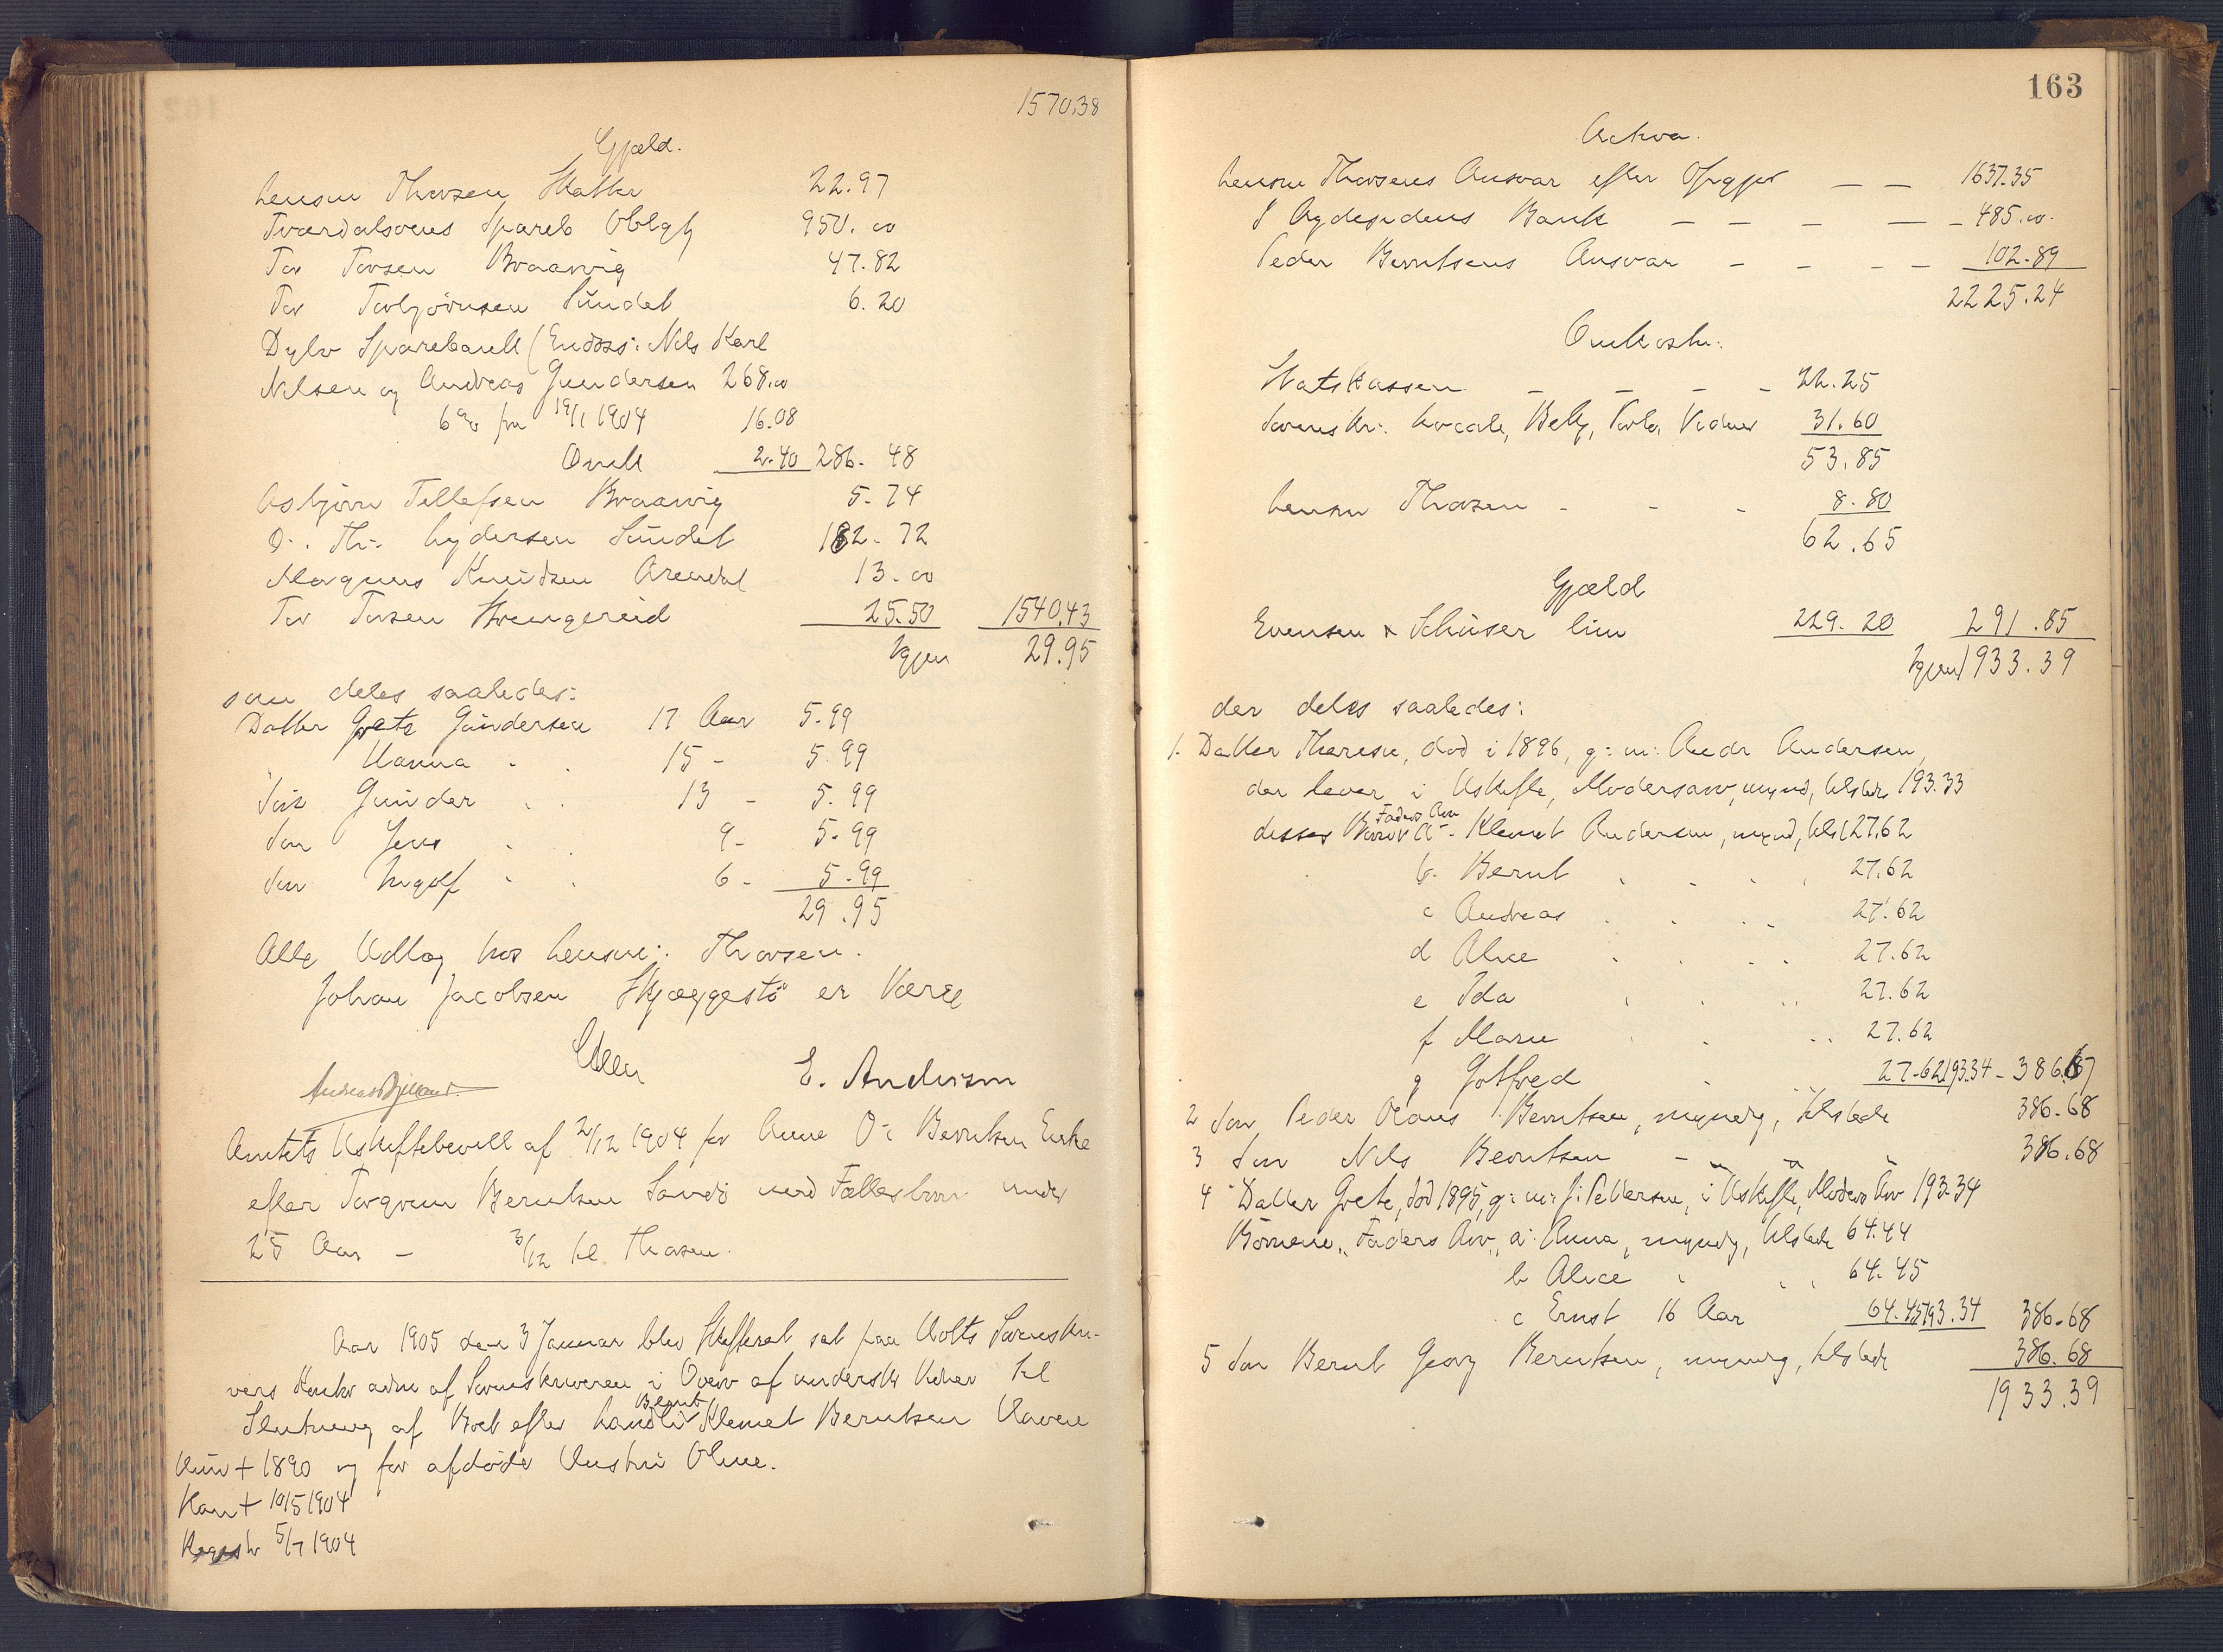 1570.38
Gjæld.
Lensm Thorsen, Skatter 22.97
Tværdalsoens Spareb Oblgtj 950.00
Tor Torsen Braarvig 47.82
Tor Torbjørnsen Sundet 6.20
Dybv Sparebank (Endoss: Nils Karl
Nilsen og Andreas Gundersen 268.00
6% fra 19/1 1904 16.08
Omk 2.40 286.48
Asbjørn Tellefsen Braarvig 5.74
O. Th. Lydersen Sundet 182.72
Magnus Knudsen Arendal 13.00
Tor Torsen Strengereid 25.50 1540.43
Igjen 29.95
som deles saaledes:
Datter Grete Gundersen 17 Aar 5.99
" Hanna " " 15 - 5.99
Søn Gunder " " 13 - 5.99
Søn Jens " " 9 - 5.99
Søn Ingolf " " 6 - 5.99
29.95
Alle Udlæg hos Lensm: Thorsen.
Johan Jacobsen Skjæggestø er Værge
E. Andersen
Amtets Uskiftebevill af 2/12 1904 for Anne O: Berntsen Enke
efter Torgrim Berntsen Sandø med Fællesbørn under
25 Aar - 3/12 til Thorsen.
Aar 1905 den 3 Januar blev Skifteret sat paa Holts Sorenskri-
vers Kontor adm af Sorenskriveren i Overv af underskr Vidner til
Slutning af Boet efter Handl: Bernt Klemet Berntsen Haven
Hun + 1890 og før afdøde Hustru Oline.
Han + 10/5 1904
Regist 5/7 1904
163
Activa.
Lensm Thorsens Ansvar efter Opgjør — — 1637.35
I Agdesidens Bank — — — — 485.00.
Peder Berntsens Ansvar — — — — 102.89
2225.24
Omkostn:
Statskassen — — — — 22.25
Sorenskr: Locale, Bekj, Porto, Vidner 31.60
53.85
Lensm Thorsen - - - 8.80
62.65
Gjæld
Evensen & Schüser lim 229.20 291.85
Igjen 1933.39
der deles saaledes:
1. Datter Therese, død i 1896, g: m: Andr Andersen,
der lever i Uskifte, Modersarv, mynd, tilstede 193.33
disses Børns Faders Arv a - Klemet Andersen, mynd, tilst 27.62
b. Bernt " " " " 27.62
c Andreas " " " 27.62
d Alice " " " " 27.62
e Ida " " " 27.62
f Marie " " " 27.62
g Gotfred " " 27.62 193.34 - 386.67
2 Søn Peder Olaus Berntsen, myndig, tilstede 386.68
3 Søn Nils Berntsen - " " " 386.68
4 Datter Grete, død 1895, g: m: J: Pettersen, i Uskifte, Moders Arv 193.34
Børnene "Faders Arv" a: Anna, myndig, tilstede 64.44
b Alice " " " 64.45
c Ernst 16 Aar 64.45 193.34 386.68
5 Søn Bernt Georg Berntsen, myndig, tilstede 386.68
1933.39